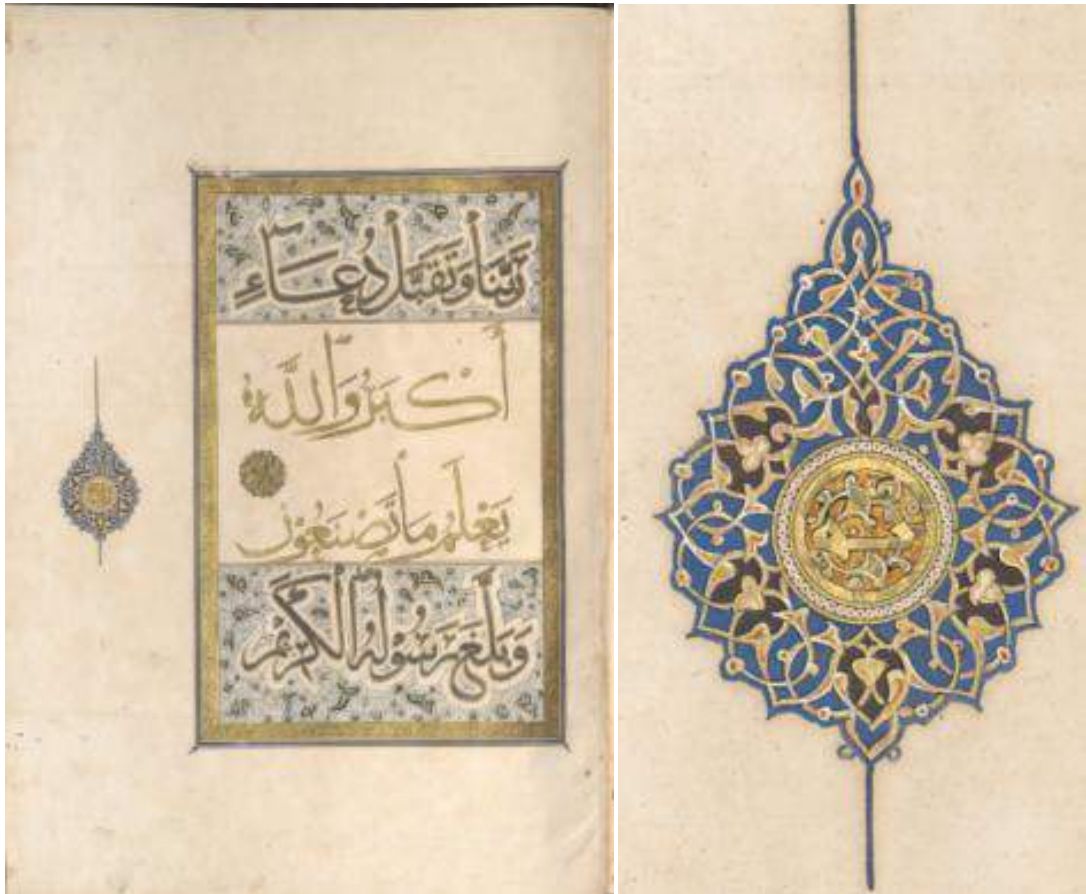 رَبَّنَا وَتَقَبَّلْ دُعَاءِ
أَكْبَرُ وَاللَّهُ
يَعْلَمُ مَا تَصْنَعُونَ
وَبَلَّغَ رَسُولُهُ الْكَرِيمُ